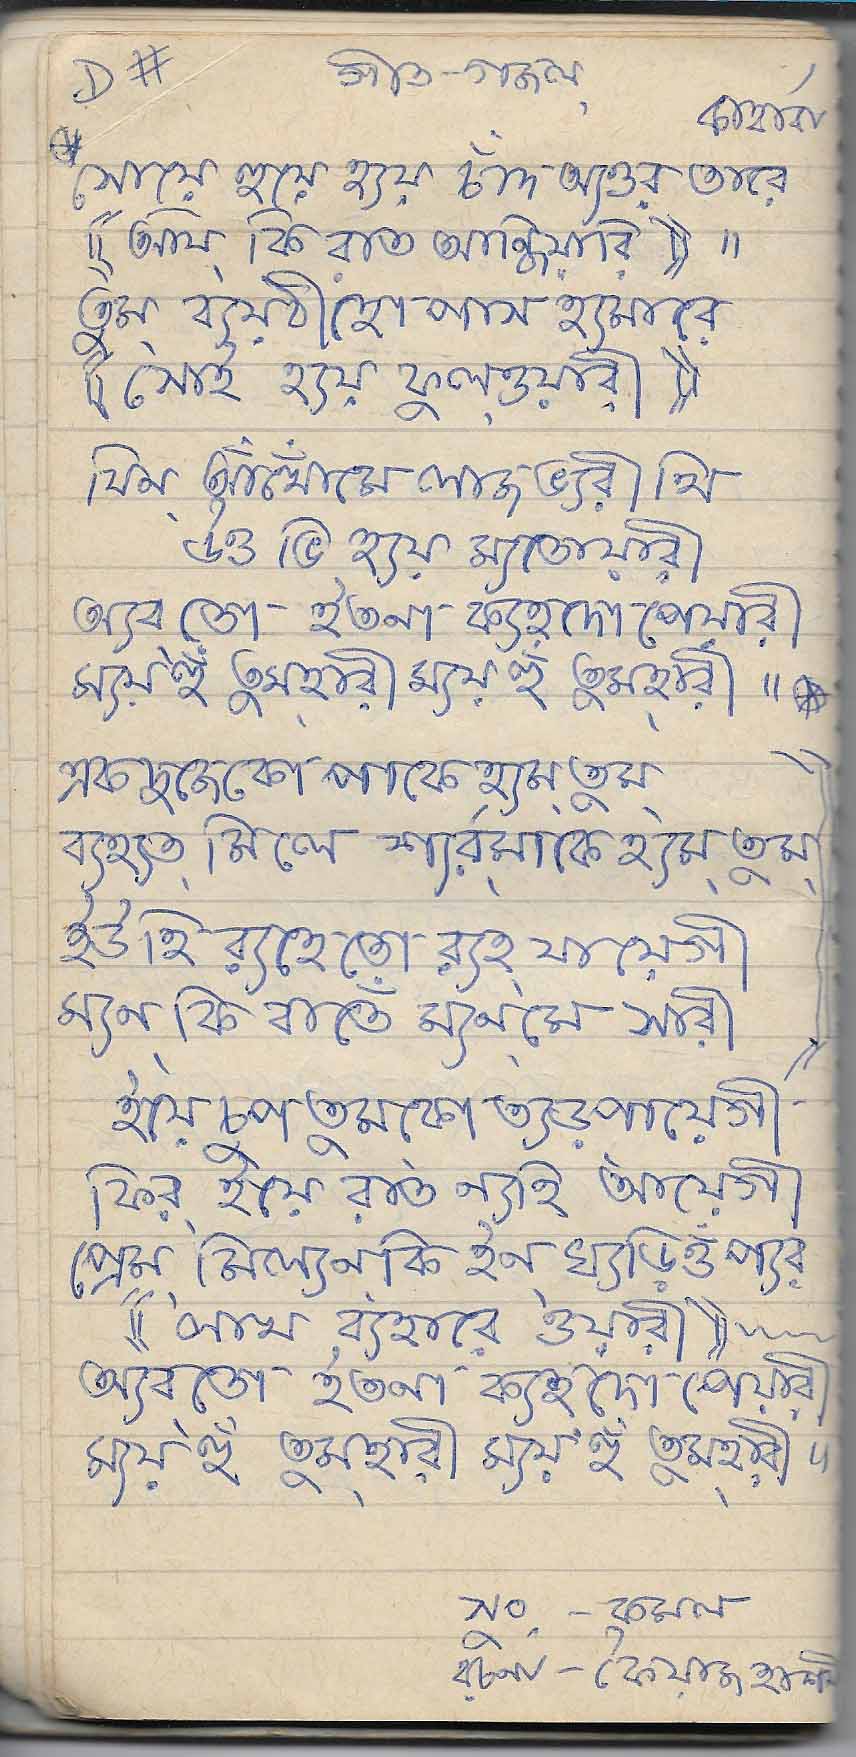 D#
গীত-গজল
কাহারবা
সোয়ে হুয়ে হ্যয় চাঁদ অ্যওর তারে
॥ আয্ কি রাত আন্ধিয়ারি ॥ "
তুম্ ব্যয়ঠী হো পাস হ্যমারে
॥ সোই হ্যয় ফুল্ওয়ারী ॥
যিন্ আঁখোঁমে লাজ ভ্যরী থি
উও ভি হ্যয় ম্যতোয়ারী
অ্যব্ তো ইতনা ক্যহ্ দো পেয়ারী
ম্যয় হুঁ তুম্হারী ম্যয় হুঁ তুম্হারী "
এক দুজে কো পাকে হ্যম্ তুম্
ব্যহ্যত্ মিলে শ্যর্মাকে হ্যম্ তুম্
ইউ হি র‍্যহে তো র‍্যহ্ যায়েগী
ম্যন্ কি বাতেঁ ম্যন্ মে সারী
ইয়ে চুপ তুমকো ত্যড়পায়েগী
ফির্ ইয়ে রাত ন্যহি আয়েগী
প্রেম্ মিল্যন কি ইন্ ঘ্যড়িওঁ প্যর
॥ লাখ ব্যহারে ওয়ারী ॥
অ্যব্ তো ইতনা ক্যহ্ দো পেয়ারী
ম্যয় হুঁ তুম্হারী ম্যয় হুঁ তুম্হারী "
সুঃ - কমল
রচনা - ফৈয়াজ হাশমী